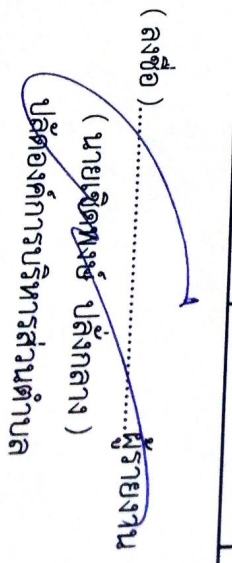 (ลงชื่อ)..............................ผู้รายงาน
(นายเชิดพงษ์ ปลั่งกลาง)
ปลัดองค์การบริหารส่วนตำบล